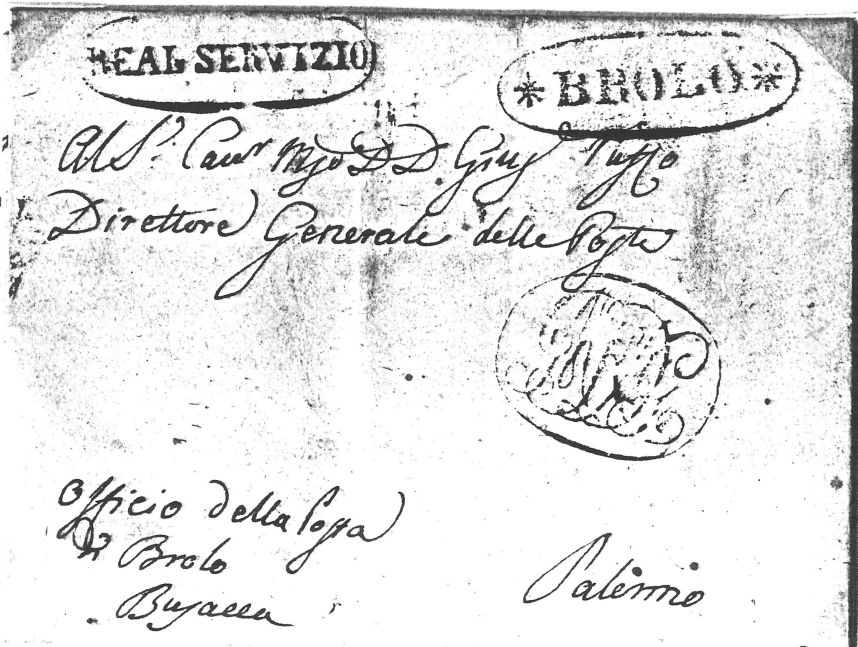 REAL SERVIZIO
* BROLO *
Al S.r Cavr Mgo D D Giuse Tuffo
Direttore Generale delle Poste
Officio della Posta
Di Brolo
Busacca
Palermo